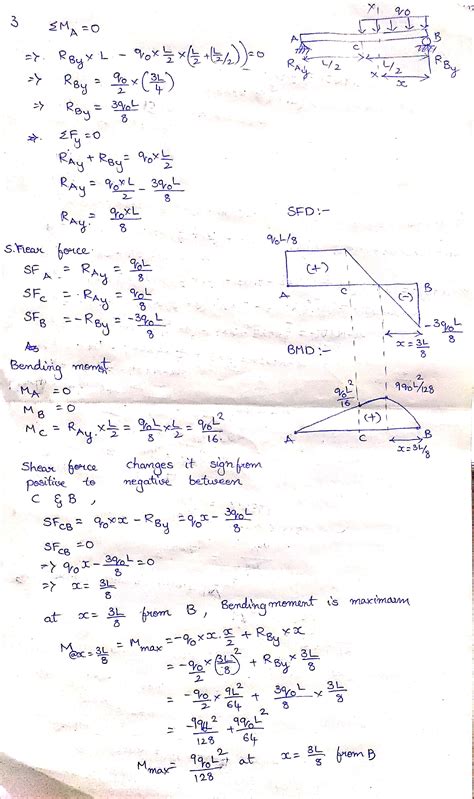 3
ΣM_A = 0
X₁ q₀
⇒ R_By × L − q₀ × L/2 × (L/2 + (L/2/2)) = 0
A C B
⇒ R_By = q₀/2 × (3L/4)
R_Ay L/2 L/2 R_By
x x
⇒ R_By = 3q₀L/8
⇒ ΣF_y = 0
R_Ay + R_By = q₀ × L/2
R_Ay = q₀×L/2 − 3q₀L/8
R_Ay = q₀×L/8
SFD:-
q₀L/8
(+)
A C B
(−)
−3q₀L/8
x = 3L/8
Shear force
SF_A = R_Ay = q₀L/8
SF_C = R_Ay = q₀L/8
SF_B = −R_By = −3q₀L/8
BMD:-
q₀L²/16
9q₀L²/128
(+)
A C B
x = 3L/8
Bending moment
M_A = 0
M_B = 0
M_C = R_Ay × L/2 = q₀L/8 × L/2 = q₀L²/16
Shear force changes it sign from
positive to negative between
C & B,
SF_CB = q₀ × x − R_By = q₀x − 3q₀L/8
SF_CB = 0
⇒ q₀x − 3q₀L/8 = 0
⇒ x = 3L/8
at x = 3L/8 from B, Bending moment is maximum
M_@x=3L/8 = M_max = −q₀ × x · x/2 + R_By × x
= −q₀/2 × (3L/8)² + R_By × 3L/8
= −q₀/2 × 9L²/64 + 3q₀L/8 × 3L/8
= −9q₀L²/128 + 9q₀L²/64
M_max = 9q₀L²/128 at x = 3L/8 from B